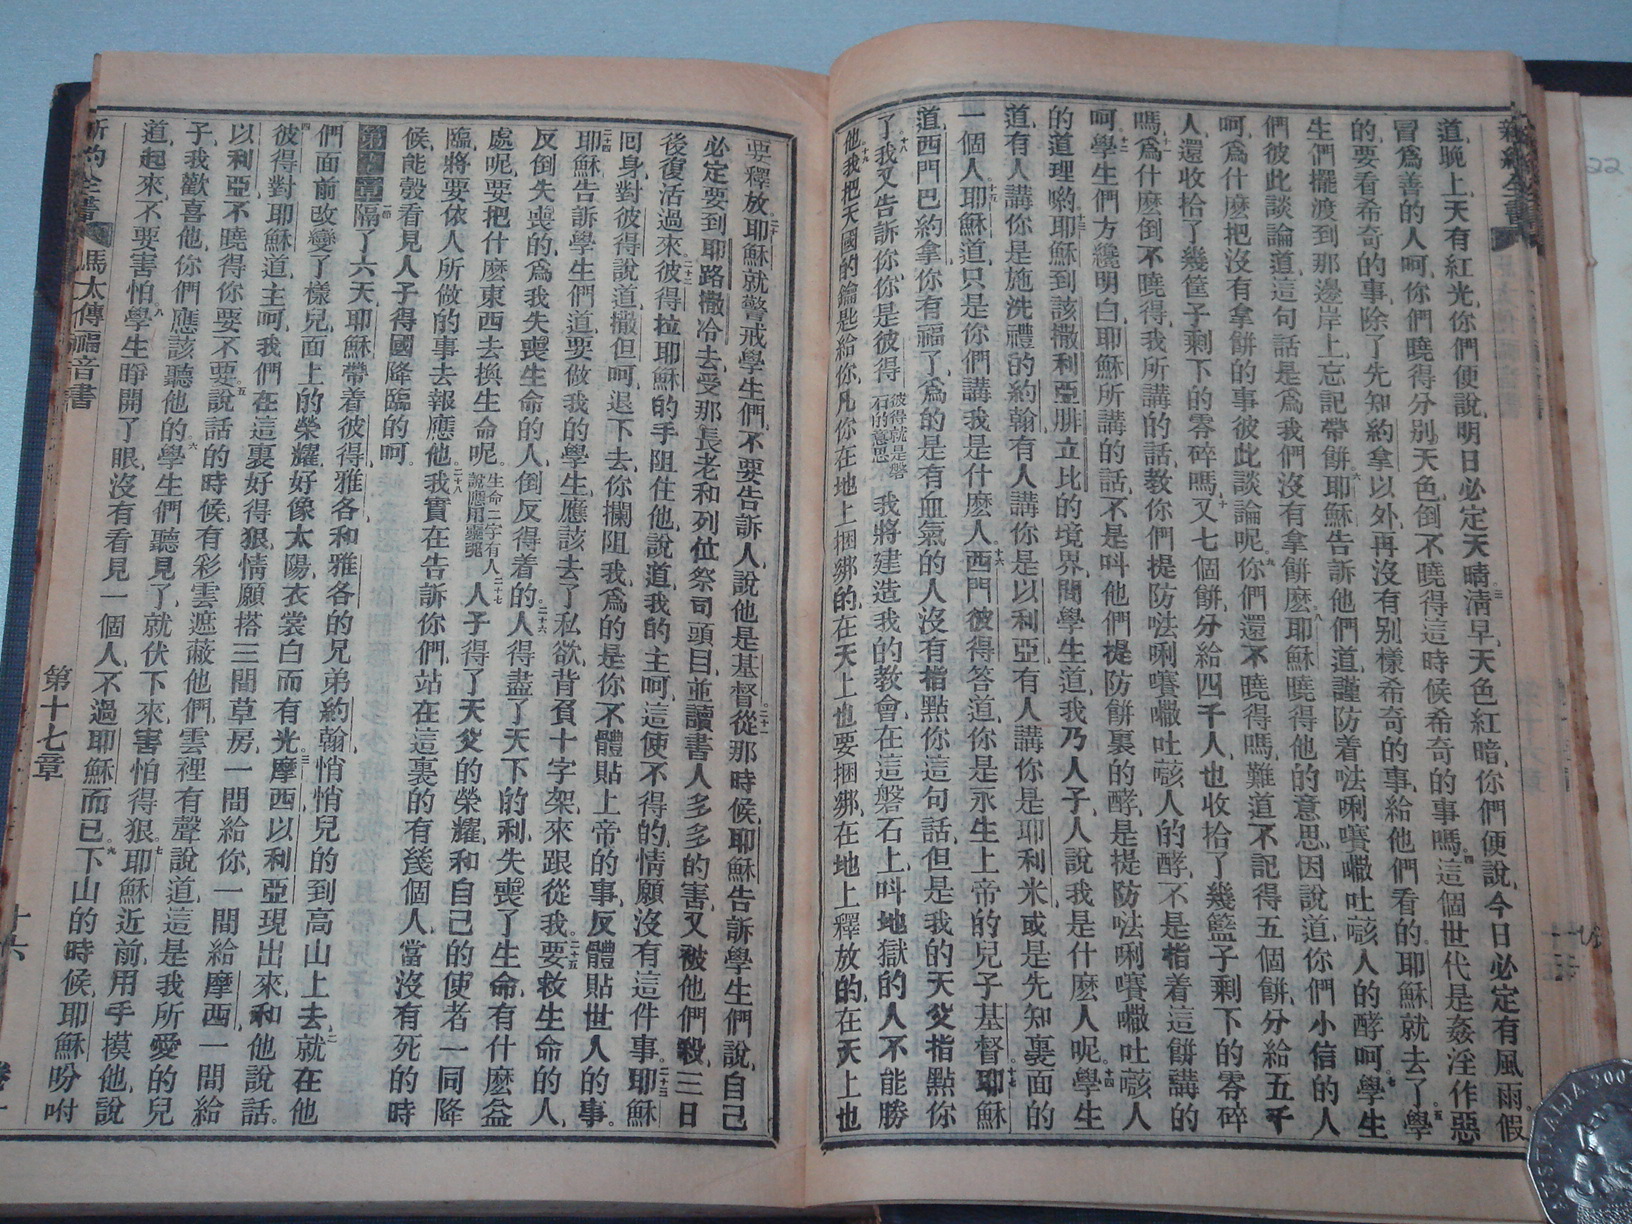 新約全書
道、晚上、天有紅光、你們便說、明日必定天晴。三清早、天色紅暗、你們便說、今日必定有風雨。假
冒爲善的人呵、你們曉得分別天色、倒不曉得這時候希奇的事嗎。四這個世代是姦淫作惡
的、要看希奇的事、除了先知約拿以外、再沒有別樣希奇的事給他們看的、耶穌就去了。五學
生們擺渡到那邊岸上、忘記帶餅、六耶穌告訴他們道、謹防着唎吐人的酵呵。七學生
們彼此談論道、這句話是爲我們沒有拿餅麽。八耶穌曉得他的意思、因說道、你們小信的人
呵、爲什麽把沒有拿餅的事彼此談論呢。九你們還不曉得嗎、難道不記得五個餅、分給五千
人、還收拾了幾筐子剩下的零碎嗎。十又七個餅、分給四千人、也收拾了幾籃子剩下的零碎
嗎。十一爲什麽倒不曉得、我所講的話、教你們提防唎吐人的酵、不是指着這餅講的
呵。十二學生們方纔明白耶穌所講的話、不是呌他們提防餅裏的酵、是提防唎吐人
的道理喲。十三耶穌到該撒利亞腓立比的境界、問學生道、我乃人子、人說我是什麽人呢。十四學生
道、有人講你是施洗禮的約翰、有人講你是以利亞、有人講你是耶利米、或是先知裏面的
一個人。十五耶穌道、只是你們講我是什麽人。十六西門彼得答道、你是永生上帝的兒子基督。十七耶穌
道、西門巴約拿、你有福了、爲的是有血氣的人沒有指點你這句話、但是我的天父指點你
了。十八我又告訴你、你是彼得、彼得就是磐石的意思我將建造我的教會在這磐石上、呌地獄的人不能勝
他。十九我把天國的鑰匙給你、凡你在地上捆綁的、在天上也要捆綁、在地上釋放的、在天上也
要釋放。二十耶穌就警戒學生們、不要告訴人、說他是基督。二十一從那時候、耶穌告訴學生們說、自己
必定要到耶路撒冷去、受那長老和列位祭司頭目、並讀書人多多的害、又被他們殺、三日
後復活過來。二十二彼得拉耶穌的手阻住他、說道、我的主呵、這使不得的、情願沒有這件事。二十三耶穌
囘身、對彼得說道、撒但呵、退下去、你攔阻我、爲的是你不體貼上帝的事、反體貼世人的事。
二十四耶穌告訴學生們道、要做我的學生、應該去了私欲、背負十字架、來跟從我。二十五要救生命的人、
反倒失喪的、爲我失喪生命的人、倒反得着的。二十六人得盡了天下的利、失喪了生命、有什麽益
處呢、要把什麽東西去換生命呢。生命二字有人說應用靈魂二十七人子得了天父的榮耀、和自己的使者一同降
臨、將要依人所做的事去報應他。二十八我實在告訴你們、站在這裏的有幾個人、當沒有死的時
候、能彀看見人子得國降臨的呵。
第十七章一節隔了六天、耶穌帶着彼得、雅各、和雅各的兄弟約翰、悄悄兒的到高山上去、二就在他
們面前改變了樣兒、面上的榮耀、好像太陽、衣裳白而有光。三摩西、以利亞現出來、和他說話。
四彼得對耶穌道、主呵、我們在這裏好得狠、情願搭三間草房、一間給你、一間給摩西、一間給
以利亞、不曉得你要不要。五說話的時候、有彩雲遮蔽他們、雲裡有聲說道、這是我所愛的兒
子、我歡喜他、你們應該聽他的。六學生們聽見了、就伏下來、害怕得狠。七耶穌近前、用手摸他、說
道、起來、不要害怕。八學生睜開了眼、沒有看見一個人、不過耶穌而已。九下山的時候、耶穌吩咐
新約全書 馬太傳福音書 第十七章 十六
22